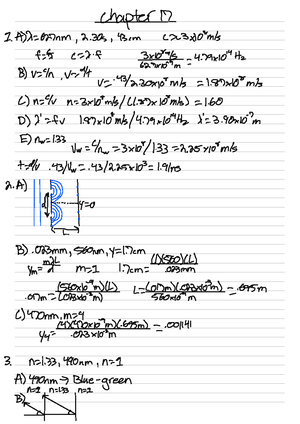 chapter 17
1. A) λ=627nm, 2.30s, 43cm c=3x10⁸m/s
f=c/λ c=λ·f 3x10⁸m/s / 627x10⁻⁹m = 4.79x10¹⁴Hz
B) v=c/n v=d/t v=.43/2.30x10⁻⁹m/s = 1.87x10⁸m/s
C) n=c/v n=3x10⁸m/s/(1.87x10⁸m/s) = 1.60
D) λ'=fv 1.87x10⁸m/s/4.79x10¹⁴Hz λ'=3.90x10⁻⁷m
E) nw=1.33
Vw=c/nw=3x10⁸/1.33=2.25x10⁸m/s
t=d/v .43/Vw=.43/2.25x10⁸=1.91ns
2. A)
d y=0
L
B) .023mm, 560nm, y=1.7cm
ym=mλL/d m=1 1.7cm=(1)(560)(L)/.023mm
.017m=(560x10⁻⁹m)(L)/(.023x10⁻³m) L=(.017m)(.023x10⁻³m)/560x10⁻⁹m=.695m
C) 470nm, m=4
y4=(4)(470x10⁻⁹m)(.695m)/.023x10⁻³m=
3. n=1.33, 490nm, n=1
A) 490nm → Blue-green
B) n=1 n=1.33 n=1